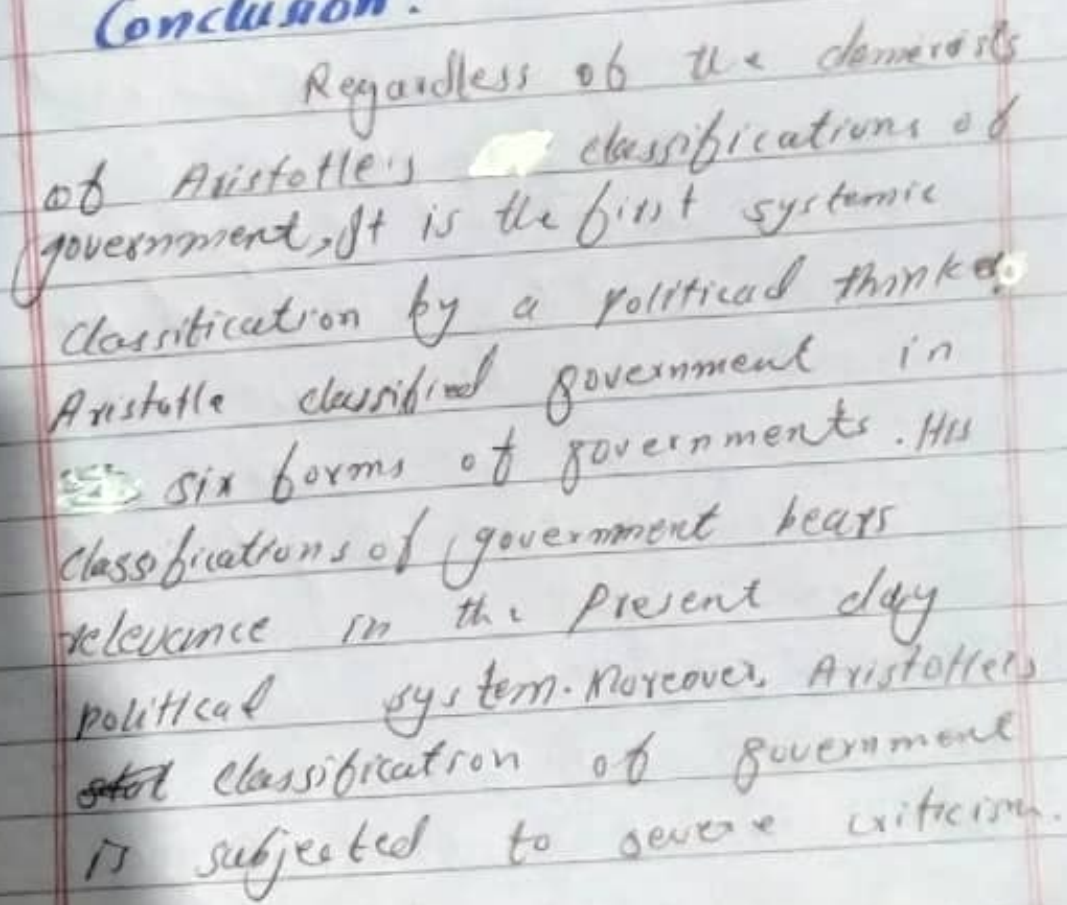 Conclusion.
Regardless of the demerits
of Aristotle's classifications of
government, It is the first systemic
classification by a political thinker.
Aristotle classified government in
six forms of governments. His
classifications of government bears
relevance in the present day
political system. Moreover, Aristotle's
classification of government
is subjected to severe criticism.